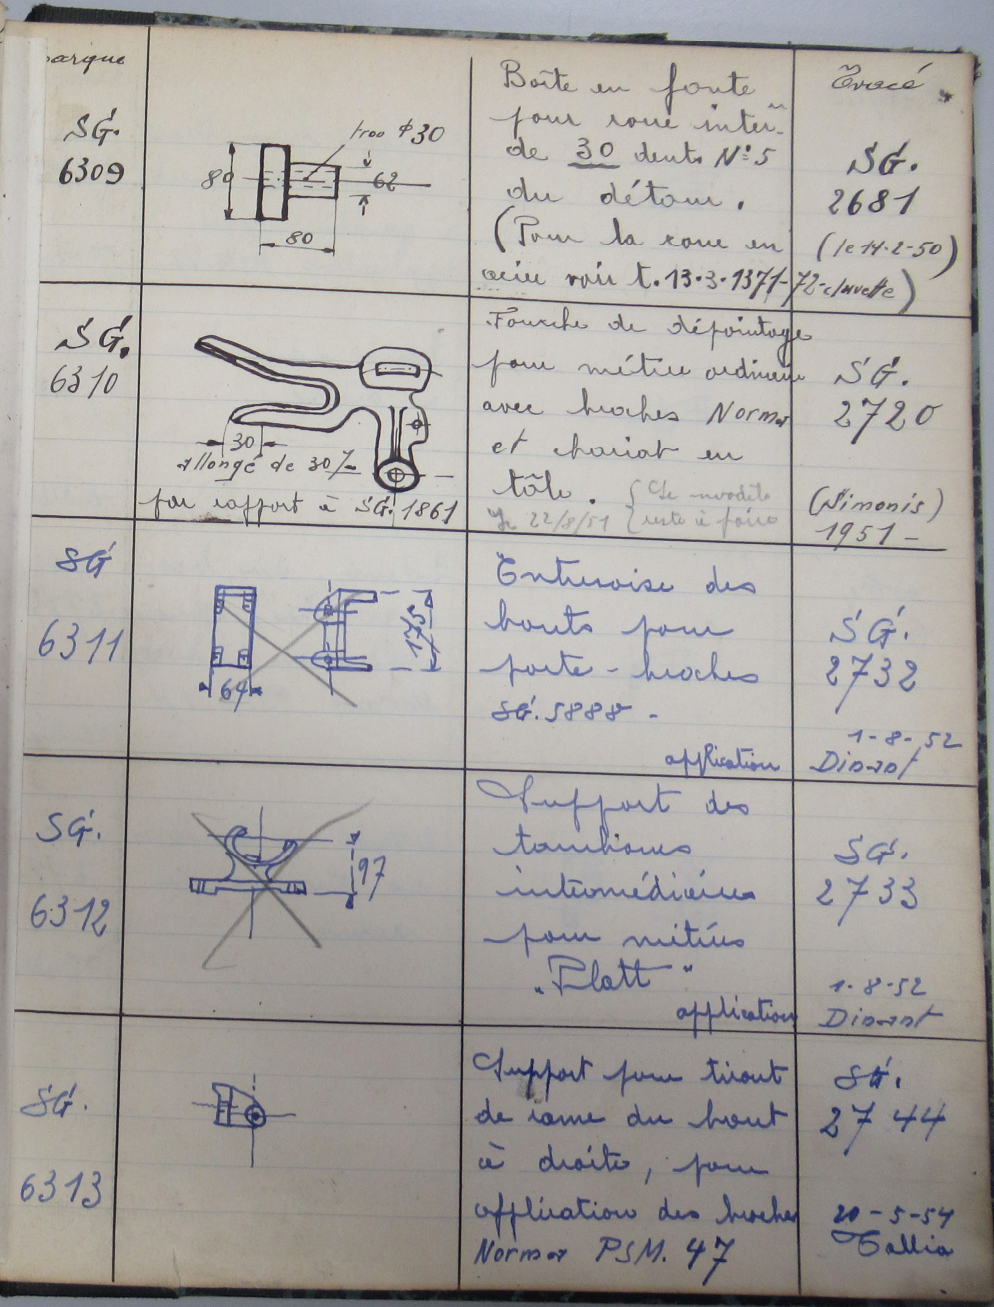 marque
Tracé
SG.
6309
trou φ30
80
62
80
Boîte en fonte
pour roue interm.
de 30 dents N°5
du détour.
(Pour la roue en
acier voir t. 13.3.1371-72-clavette)
SG.
2681
(le 14-2-50)
SG.
6310
30
allongé de 30 7-
par rapport à SG. 1861
Fourche de dépointage
pour métier ordinaire
avec broches Norma
et chariot en
tôle.
(Ce modèle
le 22/8/51 (reste à faire
SG.
2720
(Simonis)
1951-
SG
6311
64
175
Entretoise des
bouts pour
porte-broches
SG. 5888 -
application
SG.
2732
1-8-52
Dinant
SG.
6312
97
Support des
tambours
intermédiaires
pour métiers
"Platt"
application
SG.
2733
1-8-52
Dinant
SG.
6313
Support pour tirant
de rame du bout
à droite, pour
application des broches
Norma PSM. 47
SG.
2744
20-5-54
Gallia